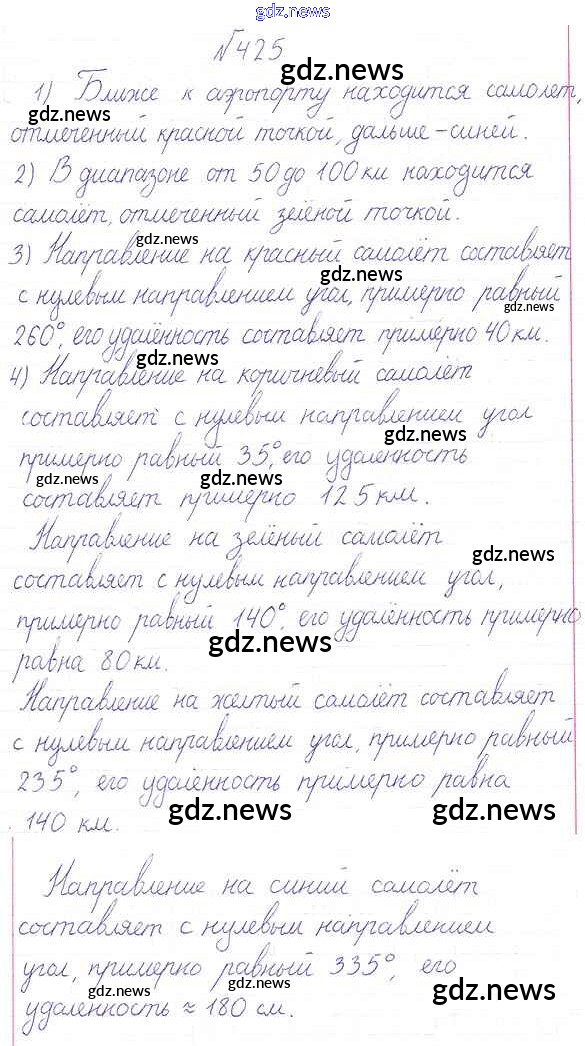 gdz.news
№425
gdz.news
1) Ближе к аэропорту находится самолёт,
gdz.news
отмеченный красной точкой, дальше – синей.
2) В диапазоне от 50 до 100 км находится
самолёт, отмеченный зелёной точкой.
gdz.news
3) Направление на красный самолёт составляет
gdz.news
с нулевым направлением угол, примерно равный
gdz.news
260°, его удалённость составляет примерно 40 км.
gdz.news
4) Направление на коричневый самолёт
составляет с нулевым направлением угол
gdz.news
примерно равный 35°, его удаленность
gdz.news gdz.news
составляет примерно 125 км.
Направление на зелёный самолёт
gdz.news
составляет с нулевым направлением угол,
примерно равный 140°, его удалённость примерно
gdz.news
равна 80 км.
Направление на желтый самолёт составляет
с нулевым направлением угол, примерно равный
235°, его удалённость примерно равна
gdz.news gdz.news
140 км.
Направление на синий самолёт
составляет с нулевым направлением
угол, примерно равный 335°, его
gdz.news gdz.news
удаленность ≈ 180 см.